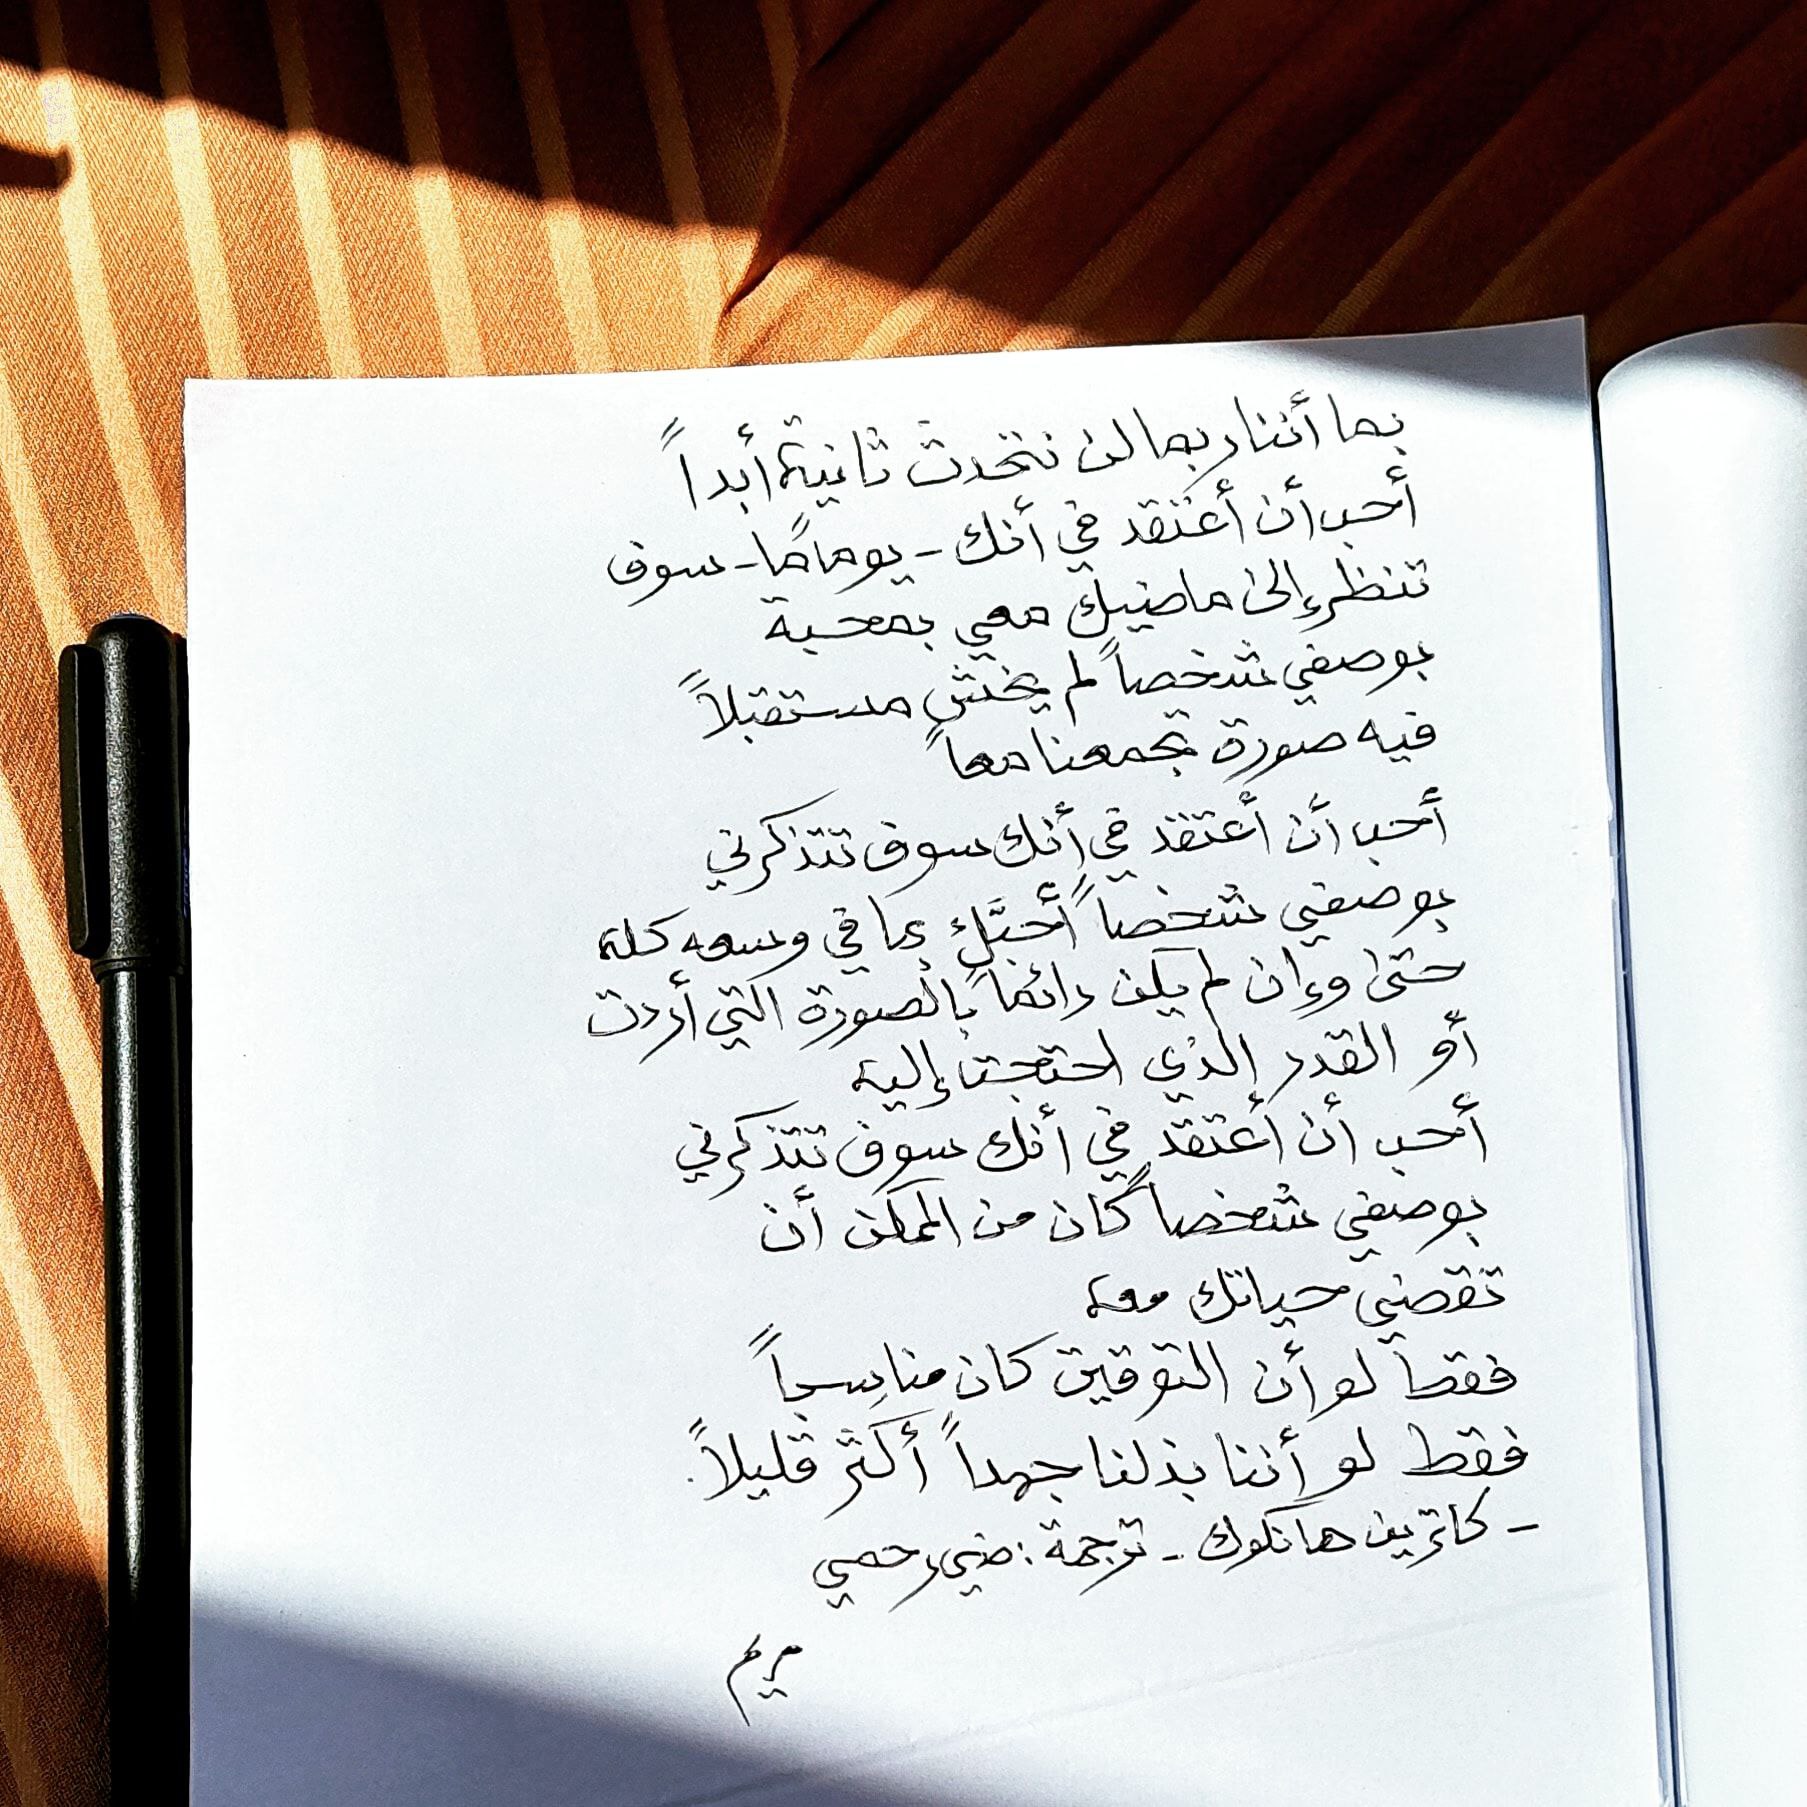 بما أننا ربما لن نتحدث ثانية أبداً
أحب أن أعتقد في أنك - يوماً ما - سوف
تنظر إلى ماضيك معي بمحبة
بوصفي شخصاً لم يخشَ مستقبلاً
فيه صورة تجمعنا معاً
أحب أن أعتقد في أنك سوف تتذكرني
بوصفي شخصاً أحبَّك بما في وسعه كله
حتى وإن لم يكن دائماً بالصورة التي أردت
أو القدر الذي احتجت إليه
أحب أن أعتقد في أنك سوف تتذكرني
بوصفي شخصاً كان من الممكن أن
تقضي حياتك معه
فقط لو أن التوقيت كان مناسباً
فقط لو أننا بذلنا جهداً أكثر قليلاً.
- كاترين هانكوك - ترجمة: ضي رحمي
مريم